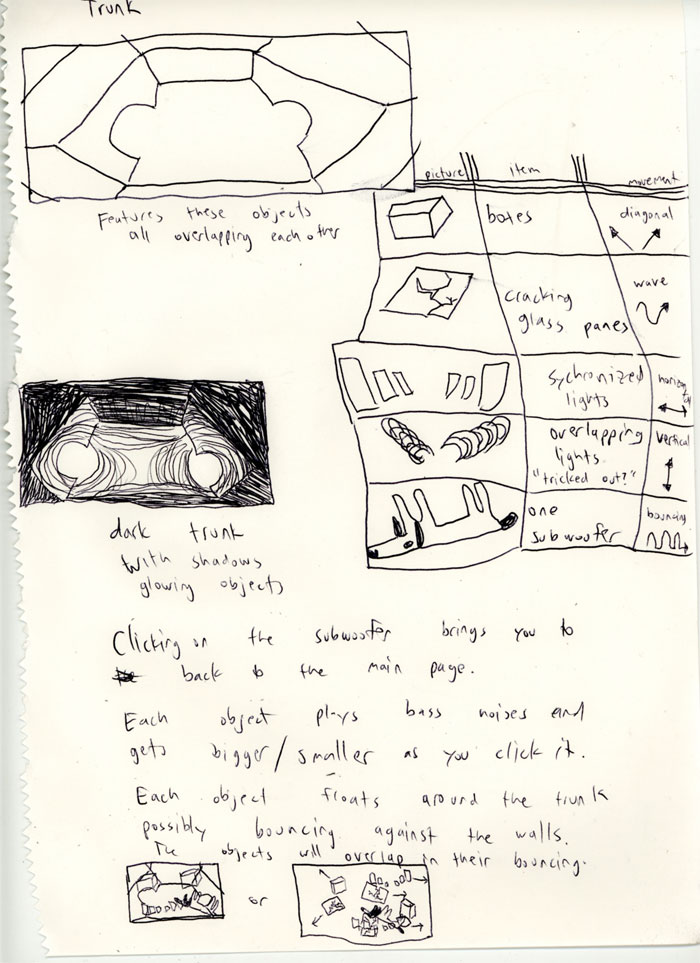 Trunk
Features these objects
all overlapping each other
picture item movement
boxes diagonal
cracking
glass panes
wave
sychronized
lights
horizontal
overlapping
lights
"tricked out?"
vertical
one
subwoofer
bouncing
dark trunk
with shadows
glowing objects
Clicking on the subwoofer brings you to
back to the main page.
Each object plays bass noises and
gets bigger/smaller as you click it.
Each object floats around the trunk
possibly bouncing against the walls.
The objects will overlap in their bouncing.
or